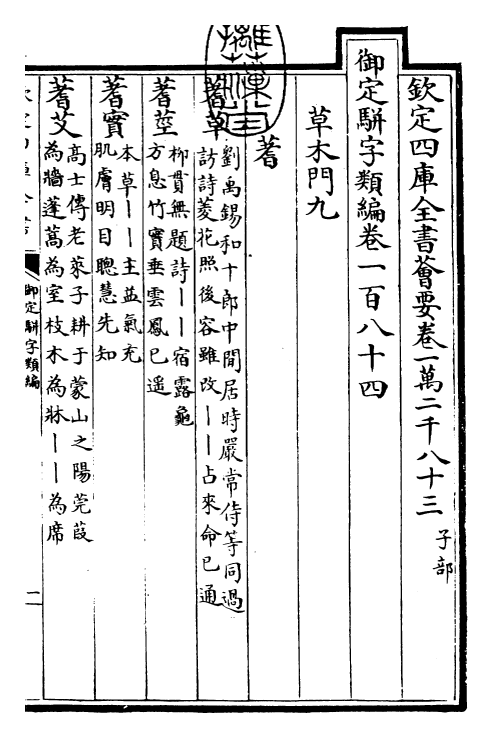 欽定四庫全書薈要卷一萬二千八十三
子部
御定駢字類編卷一百八十四
草木門九
蓍
蓍草
劉禹錫和十郎中閒居時嚴常侍等同過
訪詩菱花照後容雖改丨丨占來命已通
蓍莖
柳貫無題詩丨丨宿露龜
方息竹實垂雲鳳已遥
蓍實
本草丨丨主益氣充
肌膚明目聰慧先知
蓍艾
高士傳老萊子耕于蒙山之陽莞葭
為牆蓬蒿為室枝木為牀丨丨為席
御定駢字類編